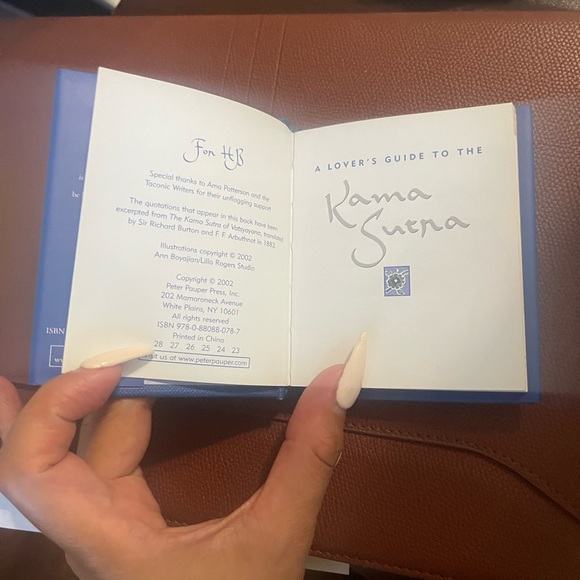 For HB
Special thanks to Ama Patterson and the
Taconic Writers for their unflagging support
The quotations that appear in this book have been
excerpted from The Kama Sutra of Vatsyayana, translated
by Sir Richard Burton and F. F. Arbuthnot in 1883.
Illustrations copyright © 2002
Ann Boyajian/Lilla Rogers Studio
Copyright © 2002
Peter Pauper Press, Inc.
202 Mamaroneck Avenue
White Plains, NY 10601
All rights reserved
ISBN 978-0-88088-078-7
Printed in China
28 27 26 25 24 23
us at www.peterpauper.com
A LOVER'S GUIDE TO THE
Kama
Sutra
ISBN